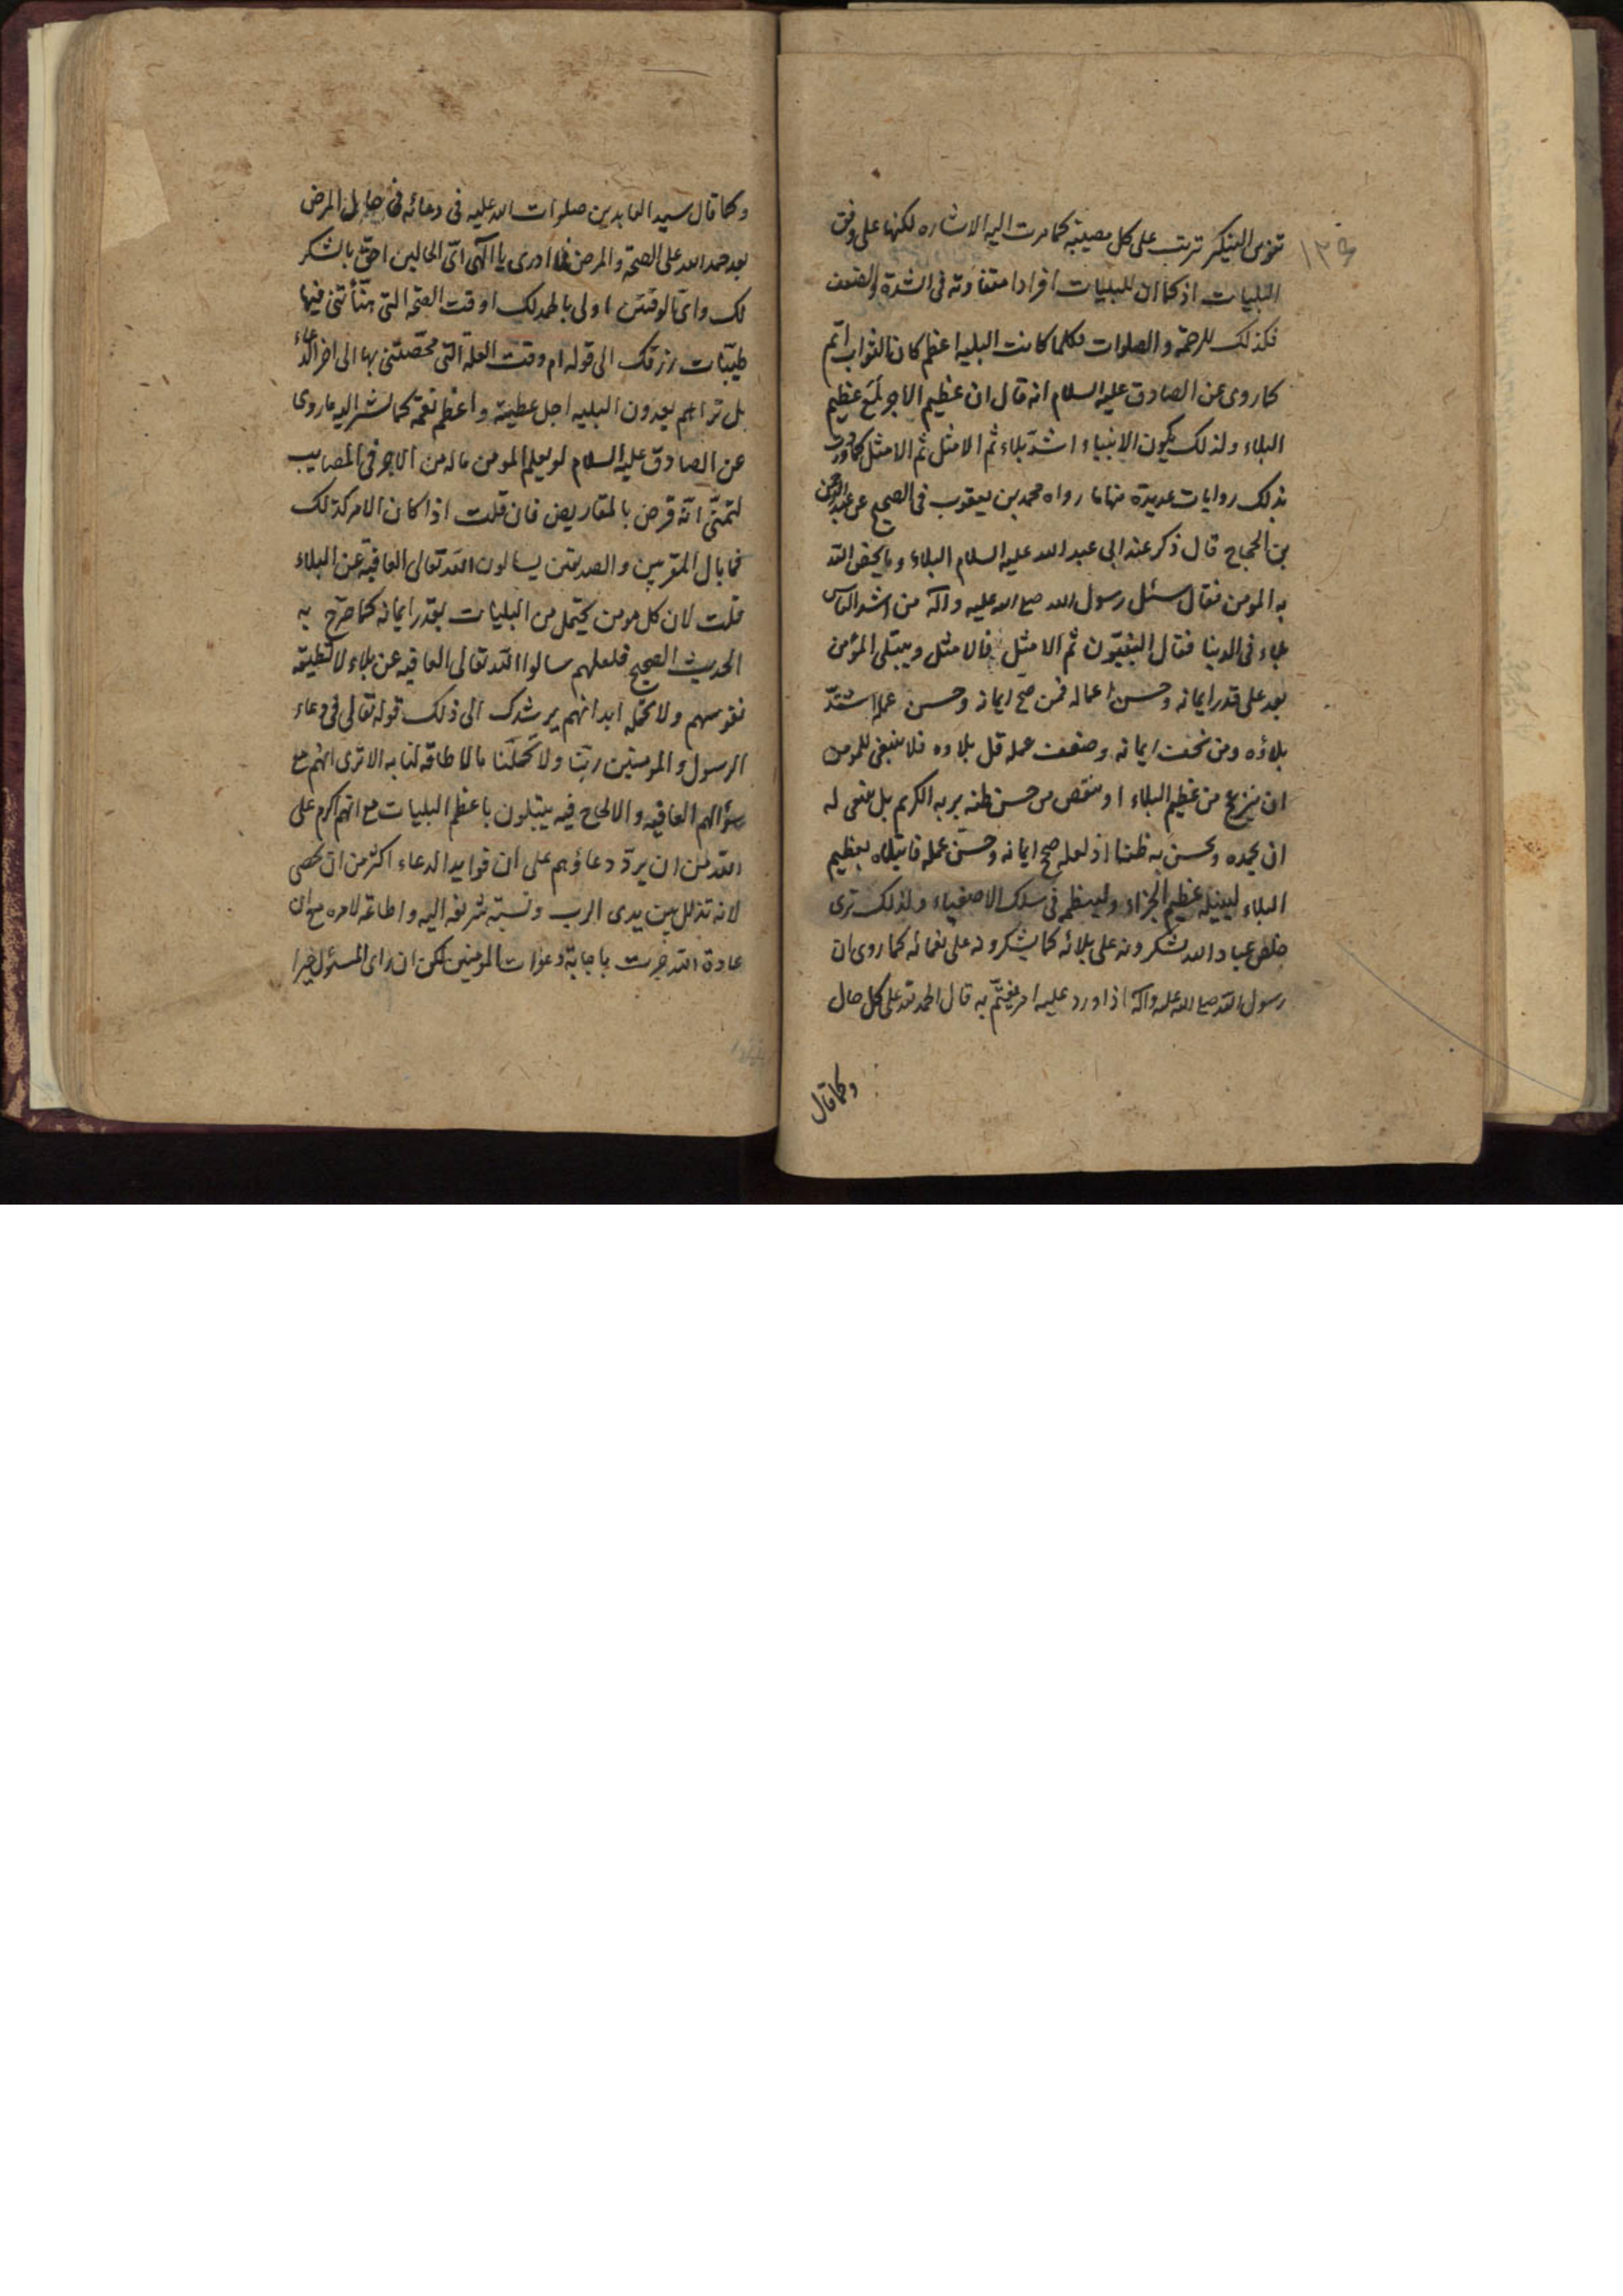 ١٣٩
ترتب على كل مصيبة كما مرت اليه الاشاره لكنها على وفق
البليات اذ كما ان للبليات افرادا متفاوته فى الشدة والضعف
فكذلك للرحمة والصلوات فكلما كانت البليه اعظم كان الثواب اتم
كما روى عن الصادق عليه السلام انه قال ان عظيم الاجر لمع عظيم
البلاء ولذلك يكون الانبياء اشد بلاء ثم الامثل ثم الامثل كما وردت
بذلك روايات عديدة منها ما رواه محمد بن يعقوب فى الصحيح عن عبد الرحمن
بن الحجاج قال ذكر عند ابى عبد الله عليه السلام البلاء وما يخص الله
به المومن فقال سئل رسول الله صلى الله عليه وآله من اشد الناس
بلاء فى الدنيا فقال النبيّون ثم الامثل فالامثل ويبتلى المؤمن
بعد على قدر ايمانه وحسن اعماله فمن صح ايمانه وحسن عمله اشتدّ
بلاؤه ومن سخف ايمانه وضعف عمله قل بلاوه فلا ينبغى للمومن
ان من عظيم البلاء او ينقص من حسن ظنه بربه الكريم بل ينبغى له
ان يحمده ويحسن به ظنا اذ لعله صح ايمانه وحسن عمله فابتلاه بعظيم
البلاء لينيله عظيم الجزاء ولينظمه فى سلك الاصفياء ولذلك ترى
خلص عباد الله يشكرونه على بلائه كما يشكرونه على نعمائه كما روى ان
رسول الله صلى الله عليه وآله اذا ورد عليه امر يغتمّ به قال الحمد لله على كل حال
وكما قال
وكما قال سيد العابدين صلوات الله عليه فى دعائه فى حال المرض
بعد حمد الله على الصحة والمرض فما ادرى يا الهى اىّ الحالين احقّ بالشكر
لك واىّ الوقتين اولى بالحمد لك اوقت الصحة التى هنّأتنى فيها
طيّبات رزقك الى قوله ام وقت العلة التى محّصتنى بها الى اخر الدعاء
بل تراهم يعدون البليه اجل عطية واعظم نعمة كما يشير اليه ما روى
عن الصادق عليه السلام لو يعلم المومن ماله من الاجر فى المصايب
لتمنّى انّه قرض بالمقاريض فان قلت اذا كان الامر كذلك
فما بال المقربين والصديقين يسالون الله تعالى العافية عن البلاء
قلت لان كل مومن يحتمل من البليات بقدر ايمانه كما صرّح به
الحديث الصحيح فلعلهم سالوا الله تعالى العافيه عن بلاء لا تطيقه
نفوسهم ولا تحمله ابدانهم يرشدك الى ذلك قوله تعالى فى دعاء
الرسول والمومنين ربّنا ولا تحمّلنا ما لا طاقة لنا به الا ترى انهم مع
سؤالهم العافيه والالحاح فيه يبتلون باعظم البليات مع انهم اكرم على
الله من ان يردّ دعاؤهم على ان فوايد الدعاء اكثر من ان تحصى
لانه تذلل بين يدى الرب ونسبة شريفه اليه واطاعة لامره مع ان
عادة الله جرت باجابة دعوات المومنين لكن ان راى المسئول خيرا